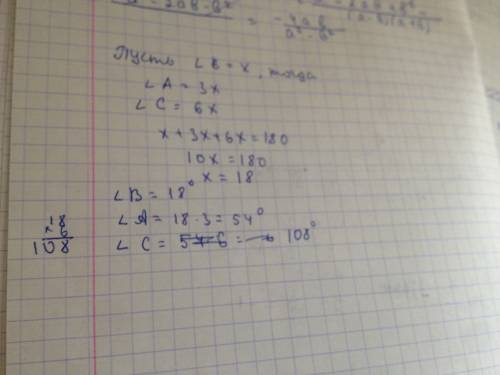 - 2ab - b²
= - 4ab / a² - b²
(a-b)(a+b)
Пусть ∠B = x, тогда
∠A = 3x
∠C = 6x
x + 3x + 6x = 180
10x = 180
x = 18
∠B = 18°
∠A = 18 · 3 = 54°
∠C = 54 · 6 = 108°
18
× 6
108